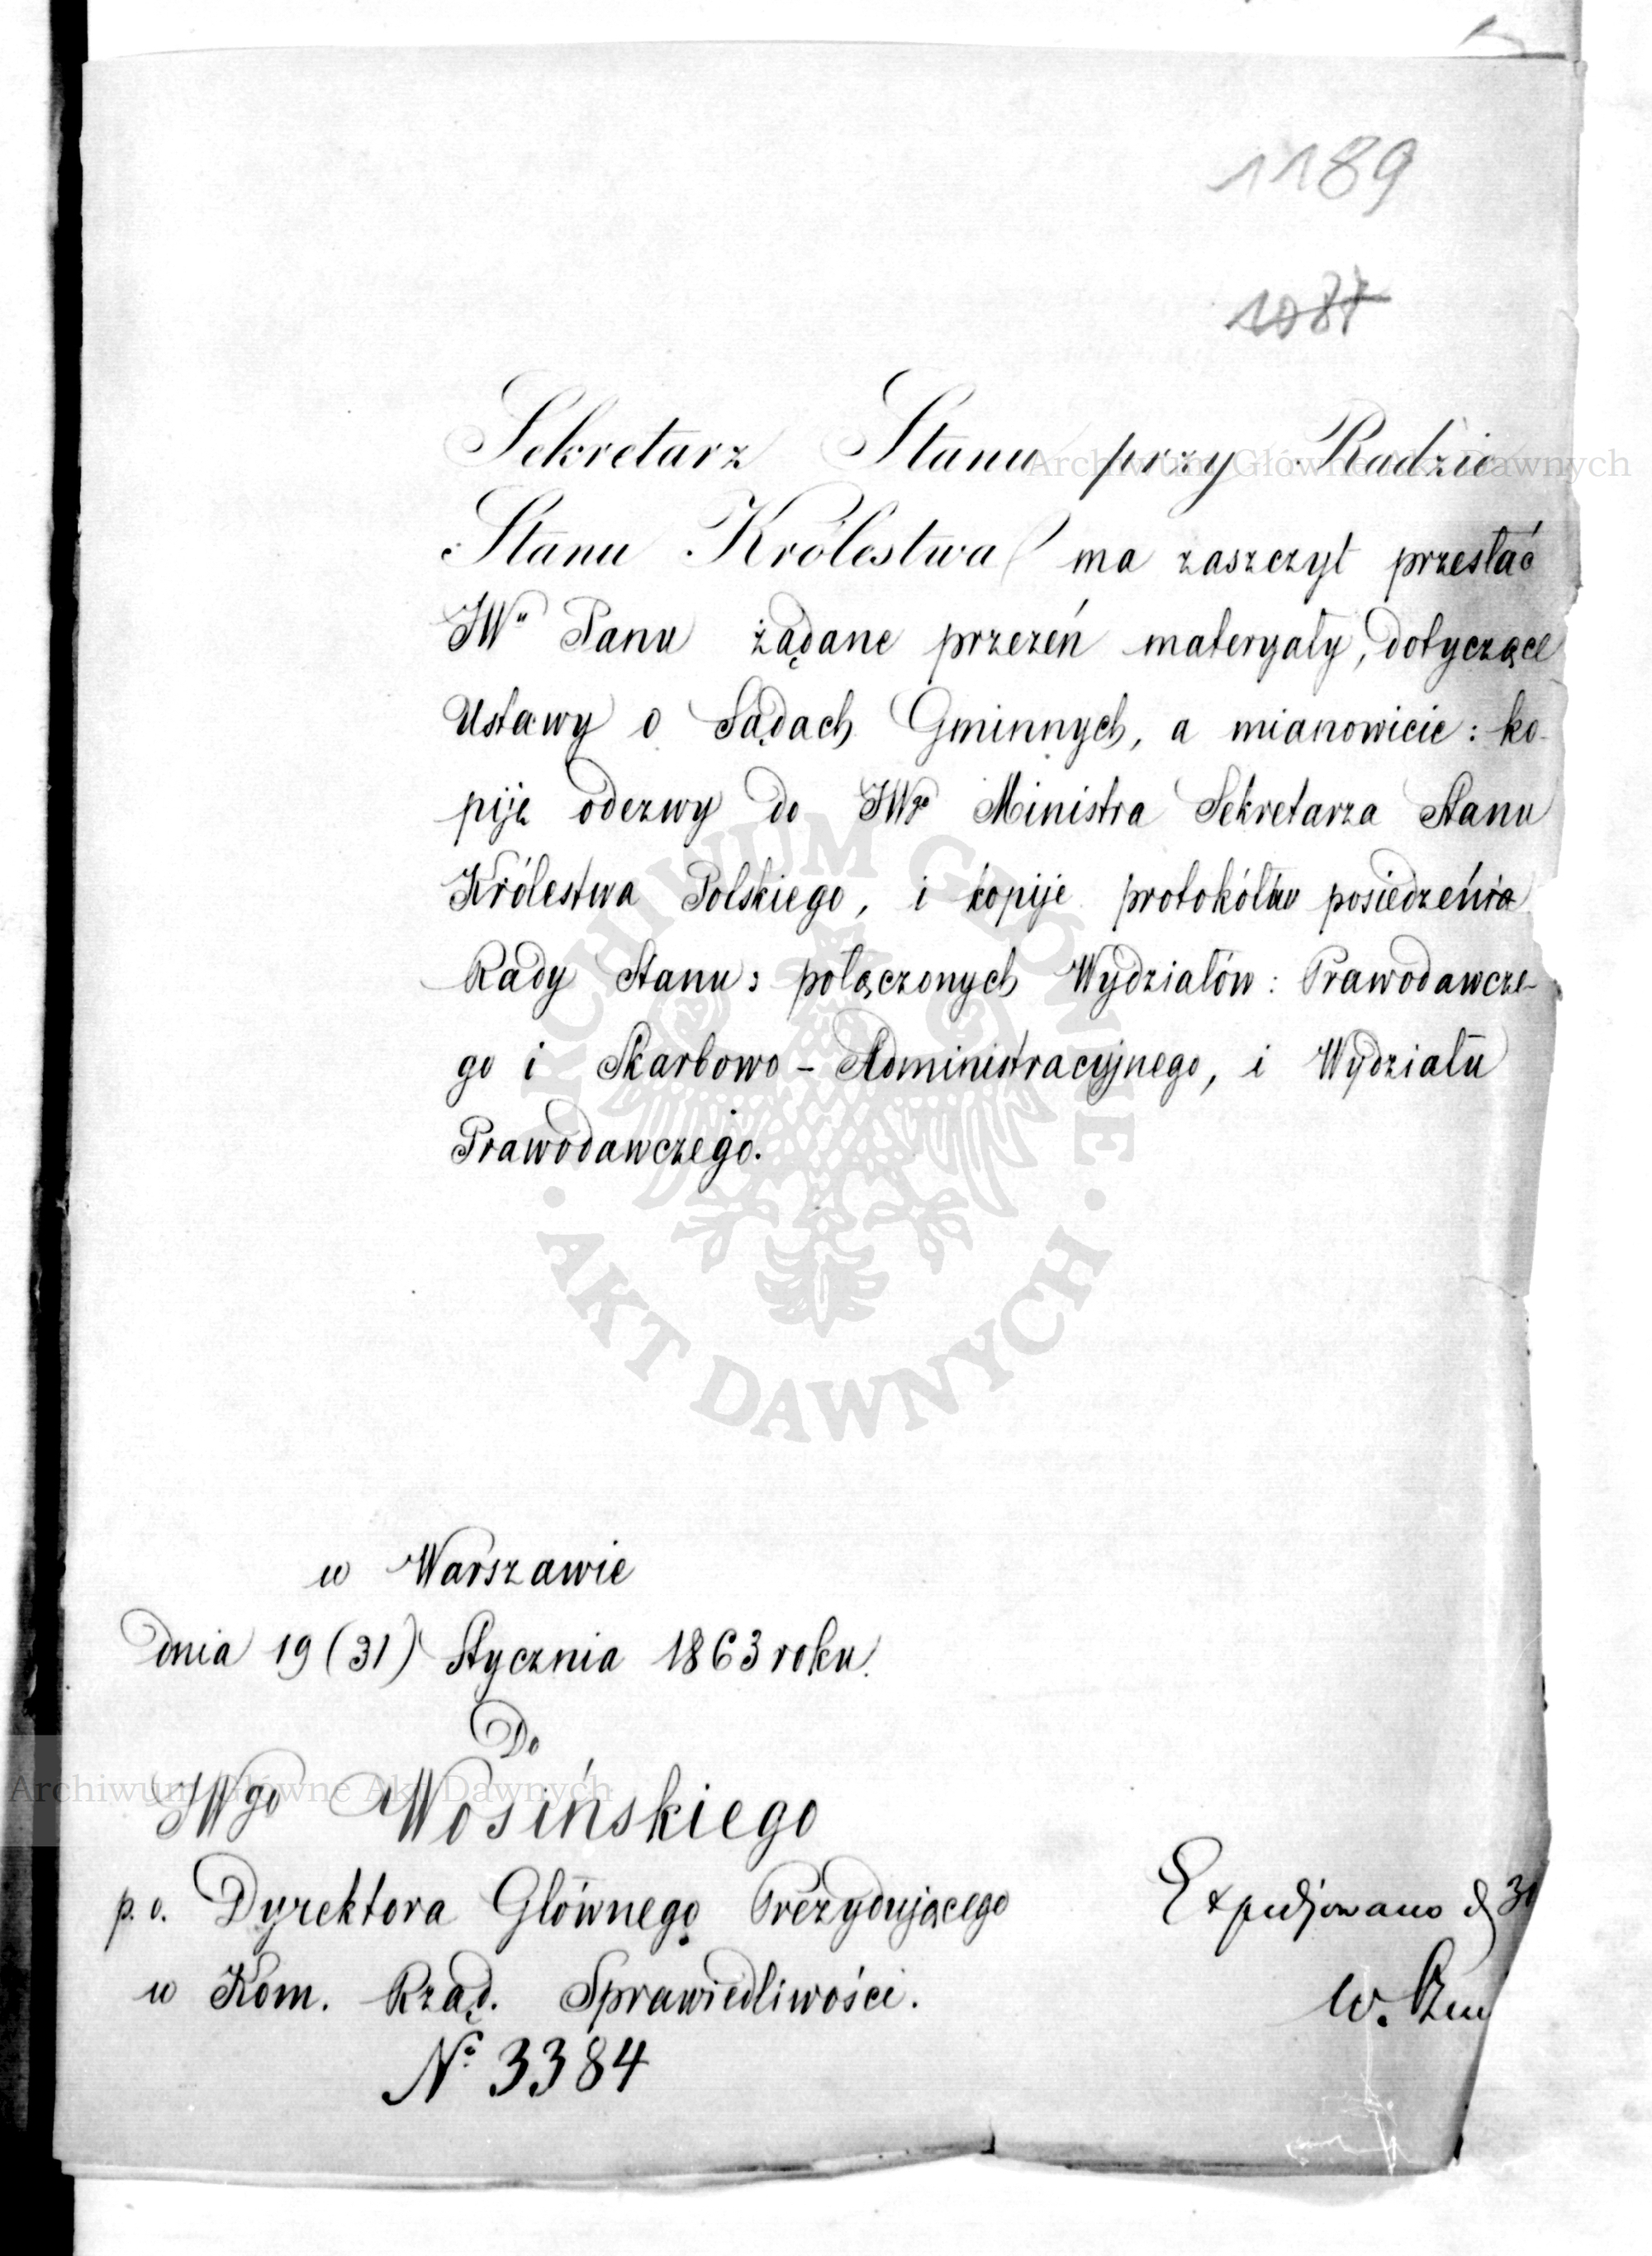 1189
1087
Sekretarz Stanu przy Radzie
Stanu Królestwa ma zaszczyt przesłać
JWu Panu żądane przezeń materyały, dotyczące
Ustawy o Sądach Gminnych, a mianowicie: ko-
piję odezwy do JWgo Ministra Sekretarza Stanu
Królestwa Polskiego, i kopije protokółów posiedzenia
Rady Stanu: połączonych Wydziałów: Prawodawcze-
go i Skarbowo-Administracyjnego, i Wydziału
Prawodawczego.
w Warszawie
dnia 19 (31) Stycznia 1863 roku.
Do
JWgo Wosińskiego
p. o. Dyrektora Głównego Prezydującego
w Kom. Rząd. Sprawiedliwości.
No 3384
Expedjowano d 31
W.
Archiwum Główne Akt Dawnych
ARCHIWUM GŁÓWNE
AKT DAWNYCH
Archiwum Główne Akt Dawnych